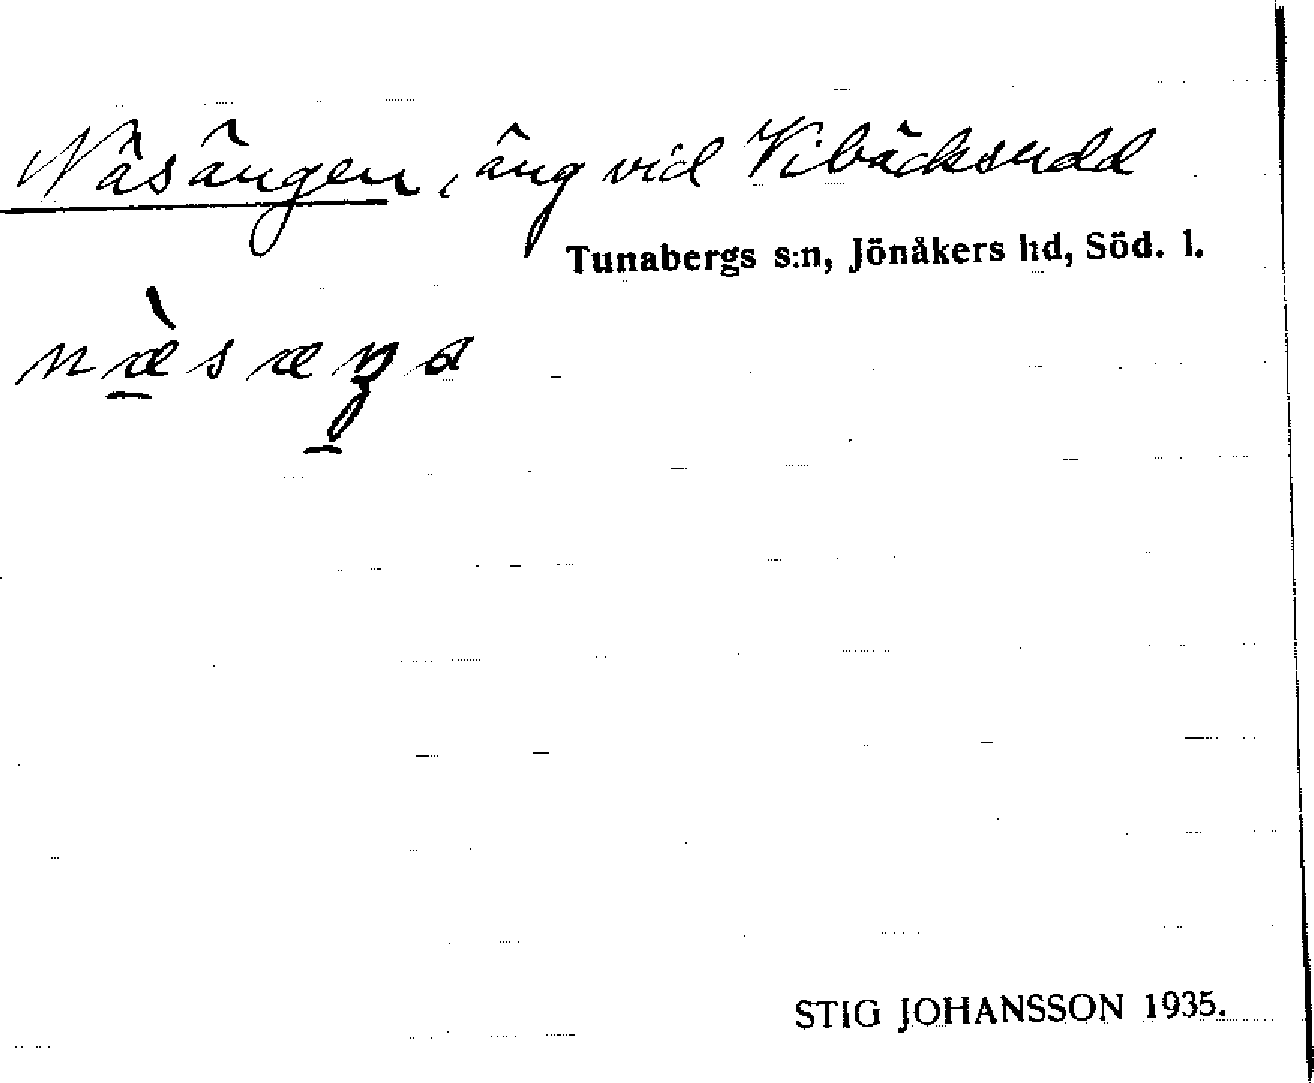 Näsängen, äng vid Vibäcksudd
Tunabergs s:n, Jönåkers hd, Söd. l.
næ̀sæŋa
STIG JOHANSSON 1935.